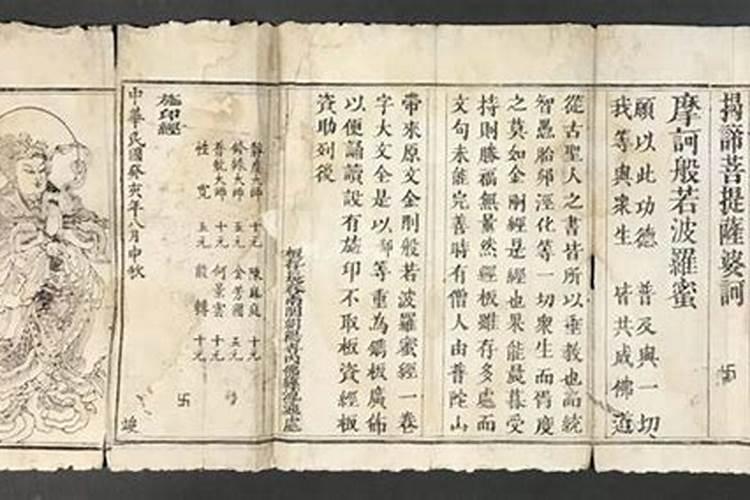 揭諦菩提薩婆訶 卍
摩訶般若波羅蜜
願以此功德 普及與一切
我等與衆生 皆共成佛道
從古聖人之書皆所以垂教也而統
智愚胎卵溼化等一切衆生而胥度
之莫如金剛經是經也果能晨暮受
持則勝福無量然經板雖存多處而
文句未能完善時有僧人由普陀山
帶來原文金剛般若波羅蜜經一卷
字大文全是以鄙等重為鐫板廣佈
以便誦讀設有施印不取板資經板
資助列後
施印經
大師 十元 陳 庭 十元
大師 五元 金芳國 五元
大師 十元 何景雲 十元
性寬 五元 轉 十元
卍
中華民國癸亥年八月中秋 竣